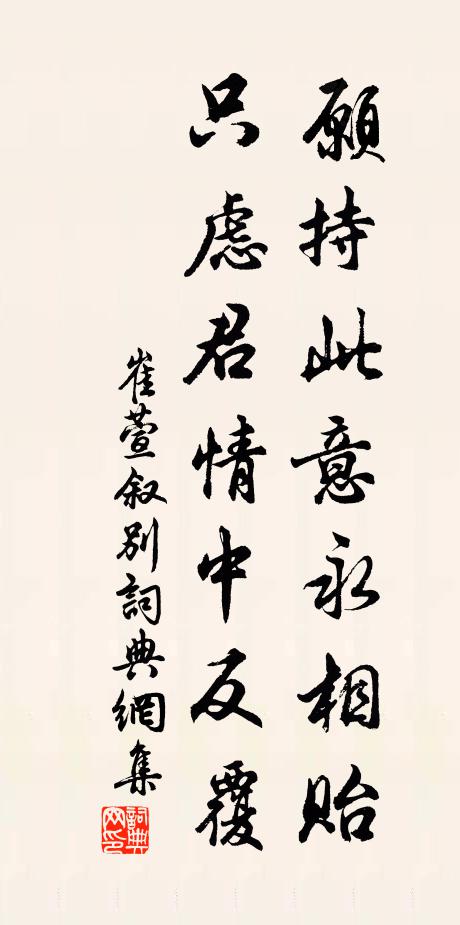 願持此意永相貽
只慮君情中反覆
崔萱叙别詞典網集
詞典網印